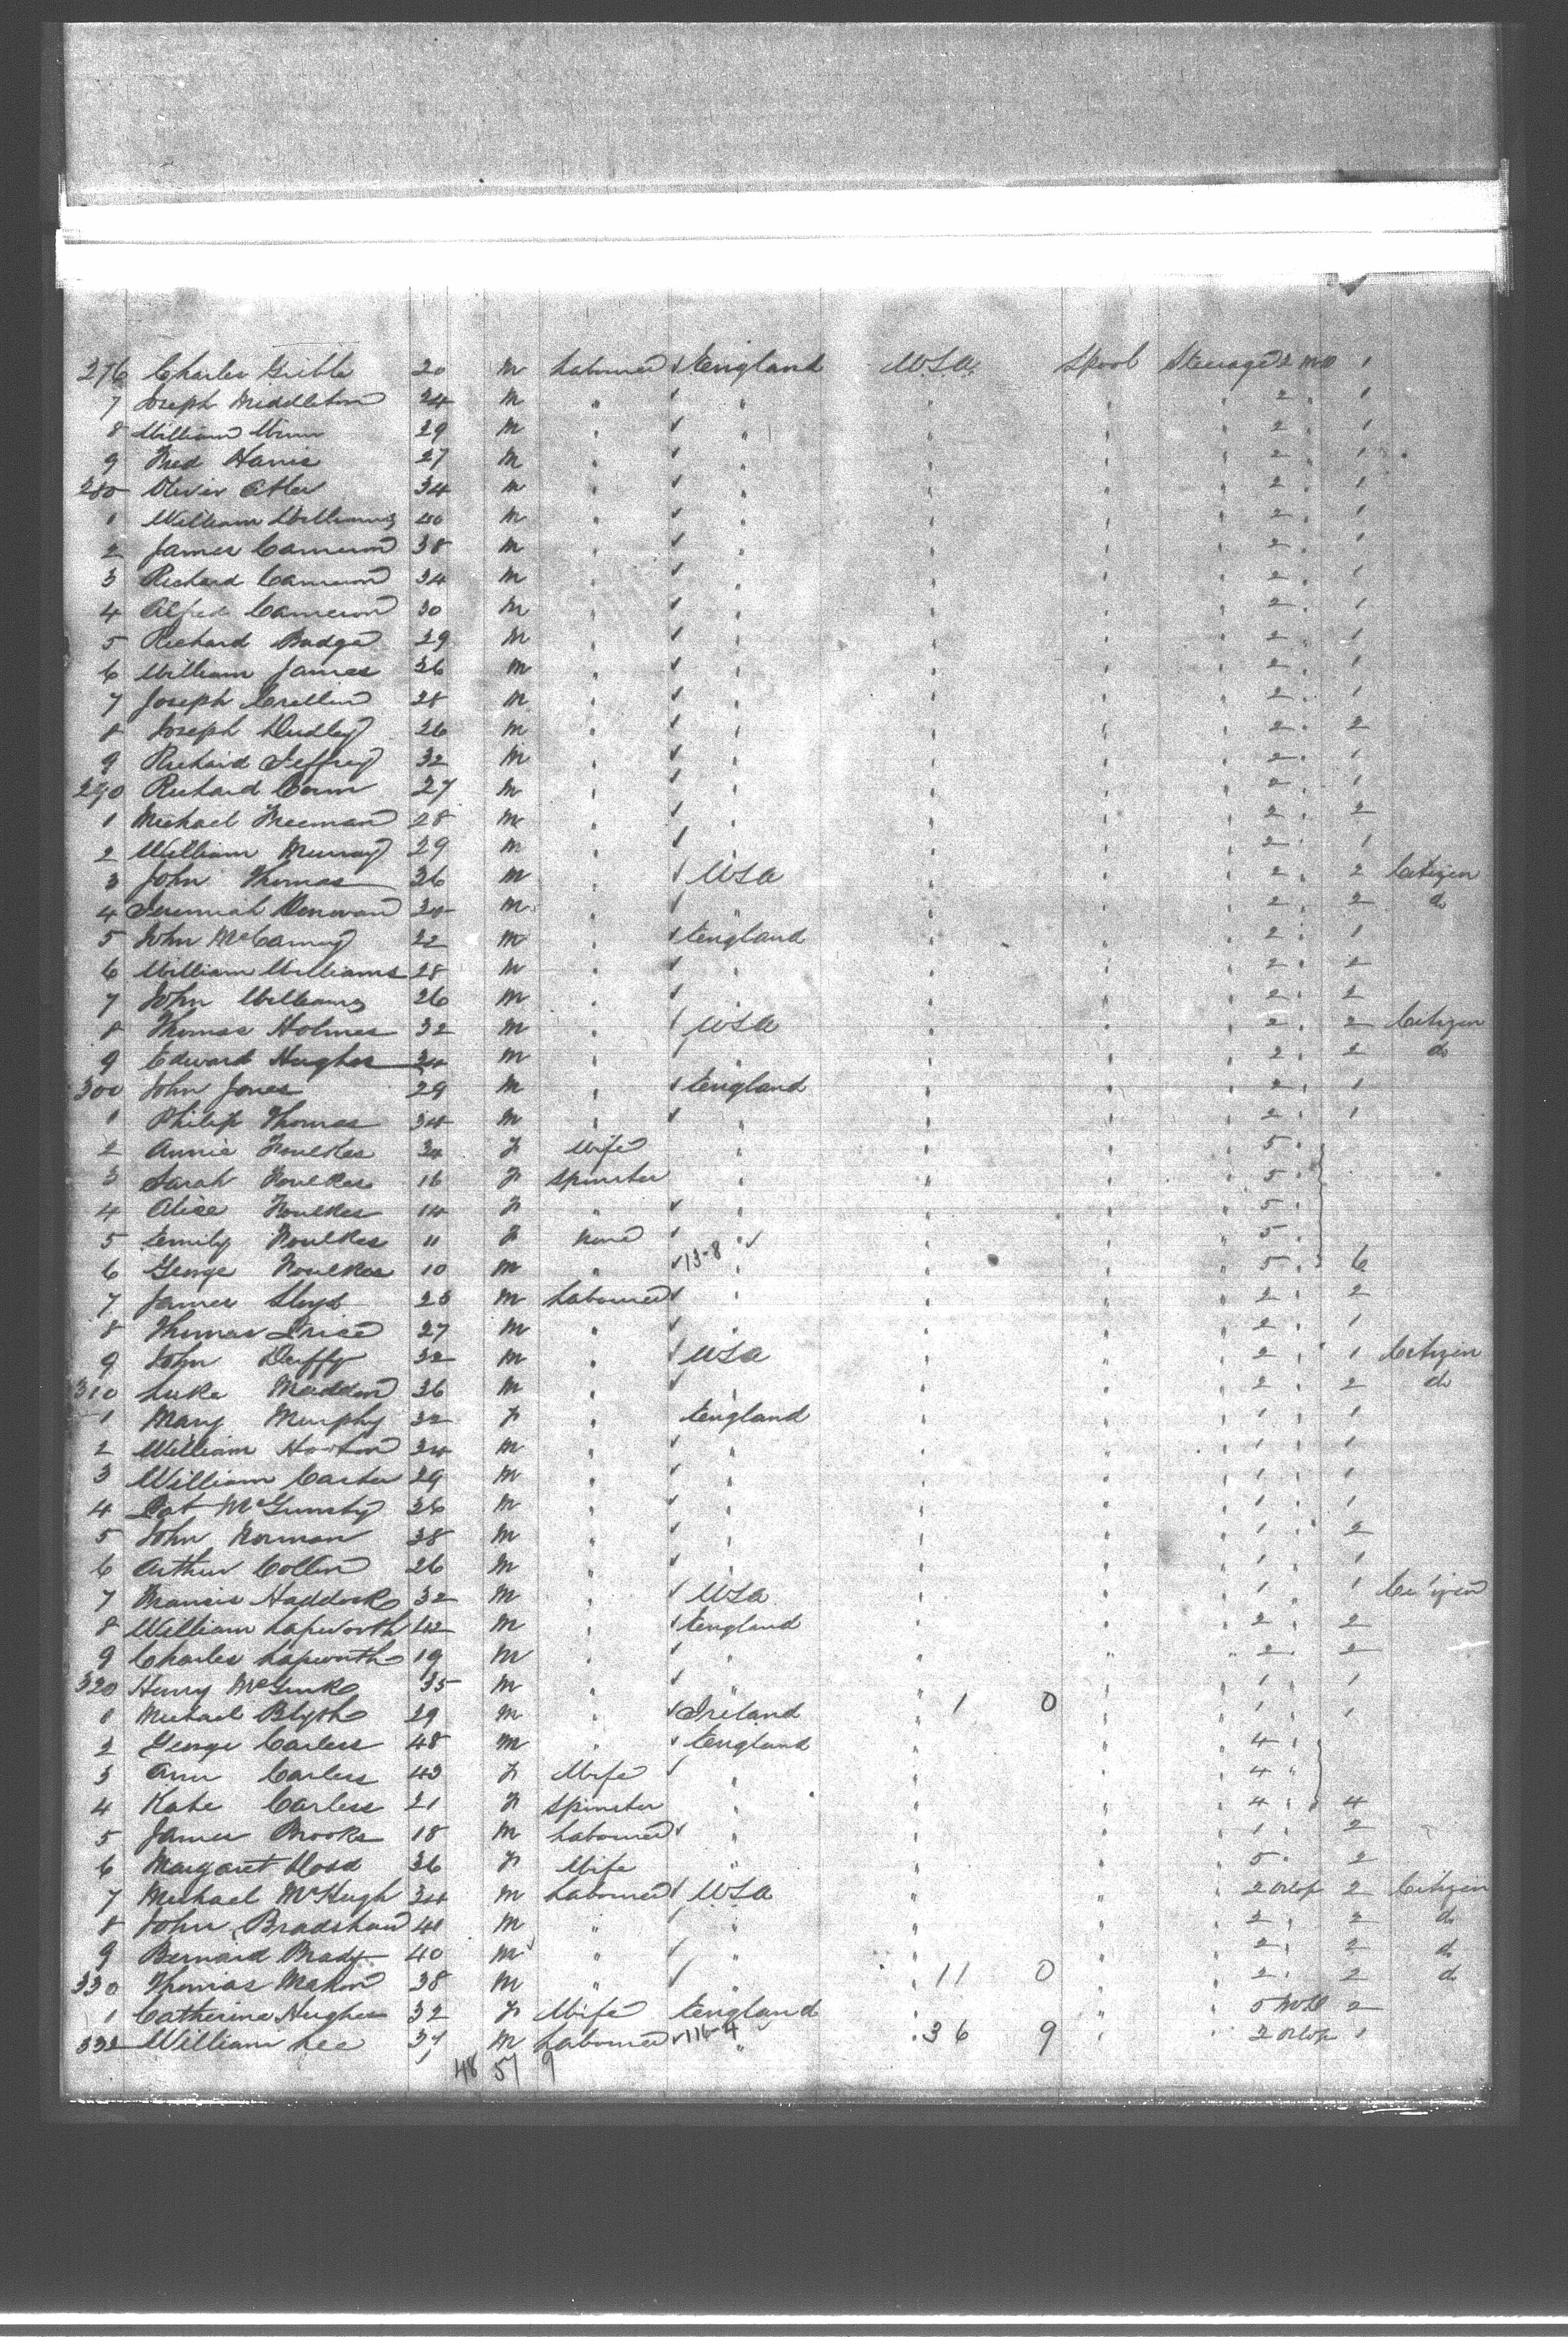 276 Charles Gribble 20 M Labourer England USA Lpool Steerage 2 MD 1
7 Joseph Middleton 24 M " " " " " 2 " 1
8 William 29 M " " " " " 2 " 1
9 Fred Harris 27 M " " " " " 2 " 1
280 Oliver 34 M " " " " " 2 " 1
1 William Williams 40 M " " " " " 2 " 1
2 James Cameron 38 M " " " " " 2 " 1
3 Richard Cameron 34 M " " " " " 2 " 1
4 Alfred Cameron 30 M " " " " " 2 " 1
5 Richard Badge 29 M " " " " " 2 " 1
6 William James 26 M " " " " " 2 " 1
7 Joseph Crellin 28 M " " " " " 2 " 1
8 Joseph Dudley 26 M " " " " " 2 " 2
9 Richard Jeffrey 32 M " " " " " 2 " 1
290 Richard Conn 27 M " " " " " 2 " 1
1 Michael Freeman 28 M " " " " " 2 " 2
2 William Murray 29 M " " " " " 2 " 1
3 John Thomas 36 M " USA " " " 2 " 2 Citizen
4 Jeremiah Donovan M " " " " " 2 " 2 do
5 John McCarney 22 M " England " " " 2 " 1
6 William Williams 28 M " " " " " 2 " 2
7 John Williams 26 M " " " " " 2 " 2
8 Thomas Holmes 32 M " USA " " " 2 " 2 Citizen
9 Edward Hughes 34 M " " " " " 2 " 2 do
300 John Jones 29 M " England " " " 2 " 1
1 Philip Thomas 34 M " " " " " 2 " 1
2 Annie Foulkes 34 F Wife " " " " 5 "
3 Sarah Foulkes 16 F Spinster " " " " 5 "
4 Alice Foulkes 14 F " " " " " 5 "
5 Emily Foulkes 11 F None " " " " 5 "
6 George Foulkes 10 M " 13-8 " " " " 5 " 6
7 James Lloyd 23 M Labourer " " " " 2 " 2
8 Thomas Price 27 M " " " " " 2 " 1
9 John Duffy 32 M " USA " " " 2 " 1 Citizen
310 Luke Madden 36 M " " " " " 2 " 2 do
1 Mary Murphy 32 F " England " " " 1 " 1
2 William Horton 24 M " " " " " 1 " 1
3 William Carter 29 M " " " " " 1 " 1
4 Pat McGunty 36 M " " " " " 1 " 1
5 John Norman 38 M " " " " " 1 " 2
6 Arthur Collin 26 M " " " " " 1 " 1
7 Francis Haddock 32 M " USA " " " 1 " 1 Citizen
8 William Lapworth 42 M " England " " " 2 " 2
9 Charles Lapworth 19 M " " " " " 2 " 2
320 Henry McGurk 35 M " " " " " 1 " 1
1 Michael Blyth 29 M " Ireland " 1 0 " " 1 " 1
2 George Carless 48 M " England " " " 4 "
3 Ann Carless 43 F Wife " " " " 4 "
4 Kate Carless 21 F Spinster " " " " 4 " 4
5 James Brooks 18 M Labourer " " " " 1 " 2
6 Margaret 36 F Wife " " " " 5 " 2
7 Michael McHugh 34 M Labourer USA " " " 2 Orlop 2 Citizen
8 John Bradshaw 41 M " " " " " 2 " 2 do
9 Bernard Brady 40 M " " " " " 2 " 2 do
330 Thomas Mahon 38 M " " " 11 0 " " 2 " 2 do
1 Catherine Hughes 32 F Wife England " " " 5 MD 2
332 William Lee 37 M Labourer 116-4 " " 36 9 " " 2 Orlop 1
48 57 9